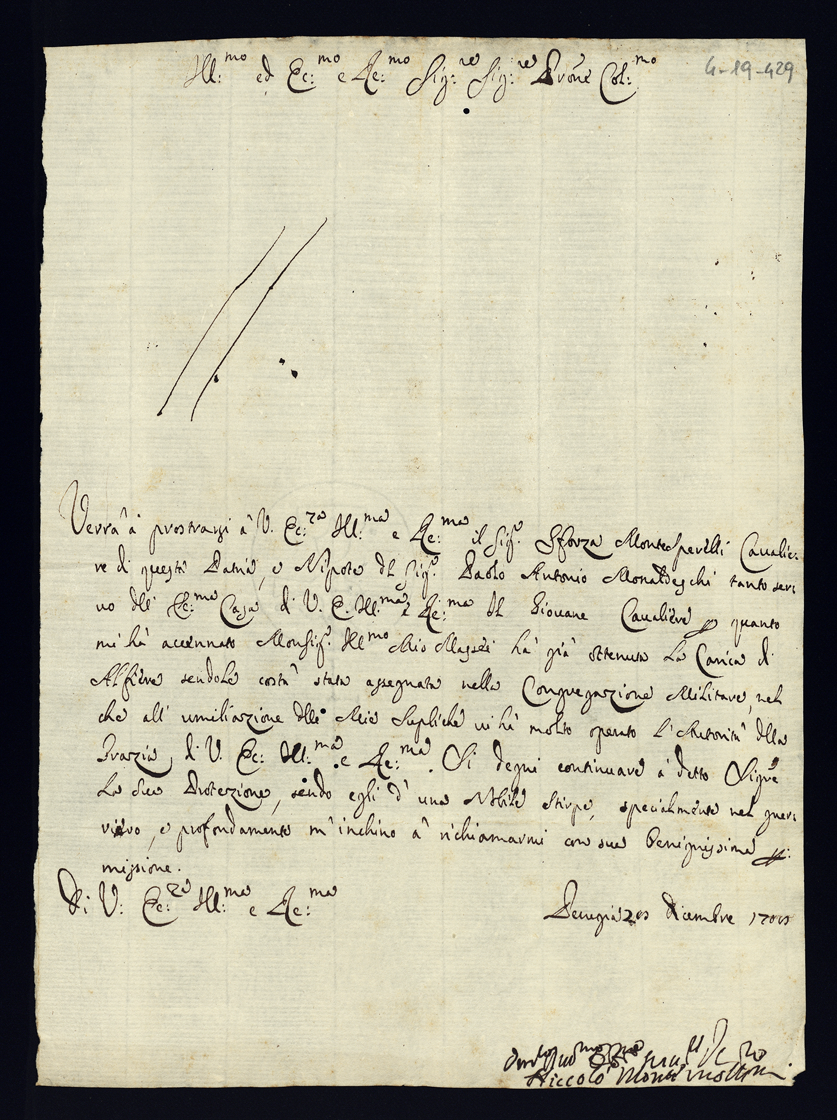 Ill:mo ed Ec:mo e Re:mo Sig:re Sig:re Prone Col:mo
4-19-429
Verrà à prostrarsi à V. Ec:za Ill:ma e Re:ma il Sigr. Sforza Montesperelli Cavalie:
re di questa Patria, e Nipote del Sigr. Paolo Antonio Monaldeschi tanto ser:
vo dell' Ec:ma Casa di V. E. Ill:ma e Re:ma del Giovane Cavaliere, quanto
mi hà accennato Monsigr. Ill:mo Mio hà già ottenuta la Carica di
Alfiere sendole costà stata assegnata nella Congregazione Militare, nel
che all' umiliazione delle Mie Supliche vi hà molto operato l'Autorità della
Grazia di V. Ec: Ill:ma e Re:ma. Si degni continuare à detto Sigre
la Sua Protezione, sendo egli d' una Nobile Stirpe, specialmente nel
e profondamente m' inchino à richiamarmi con sua benignissima
missione.
Di V: Ec:za Ill:ma e Re:ma
Perugia Dicembre
Niccolò